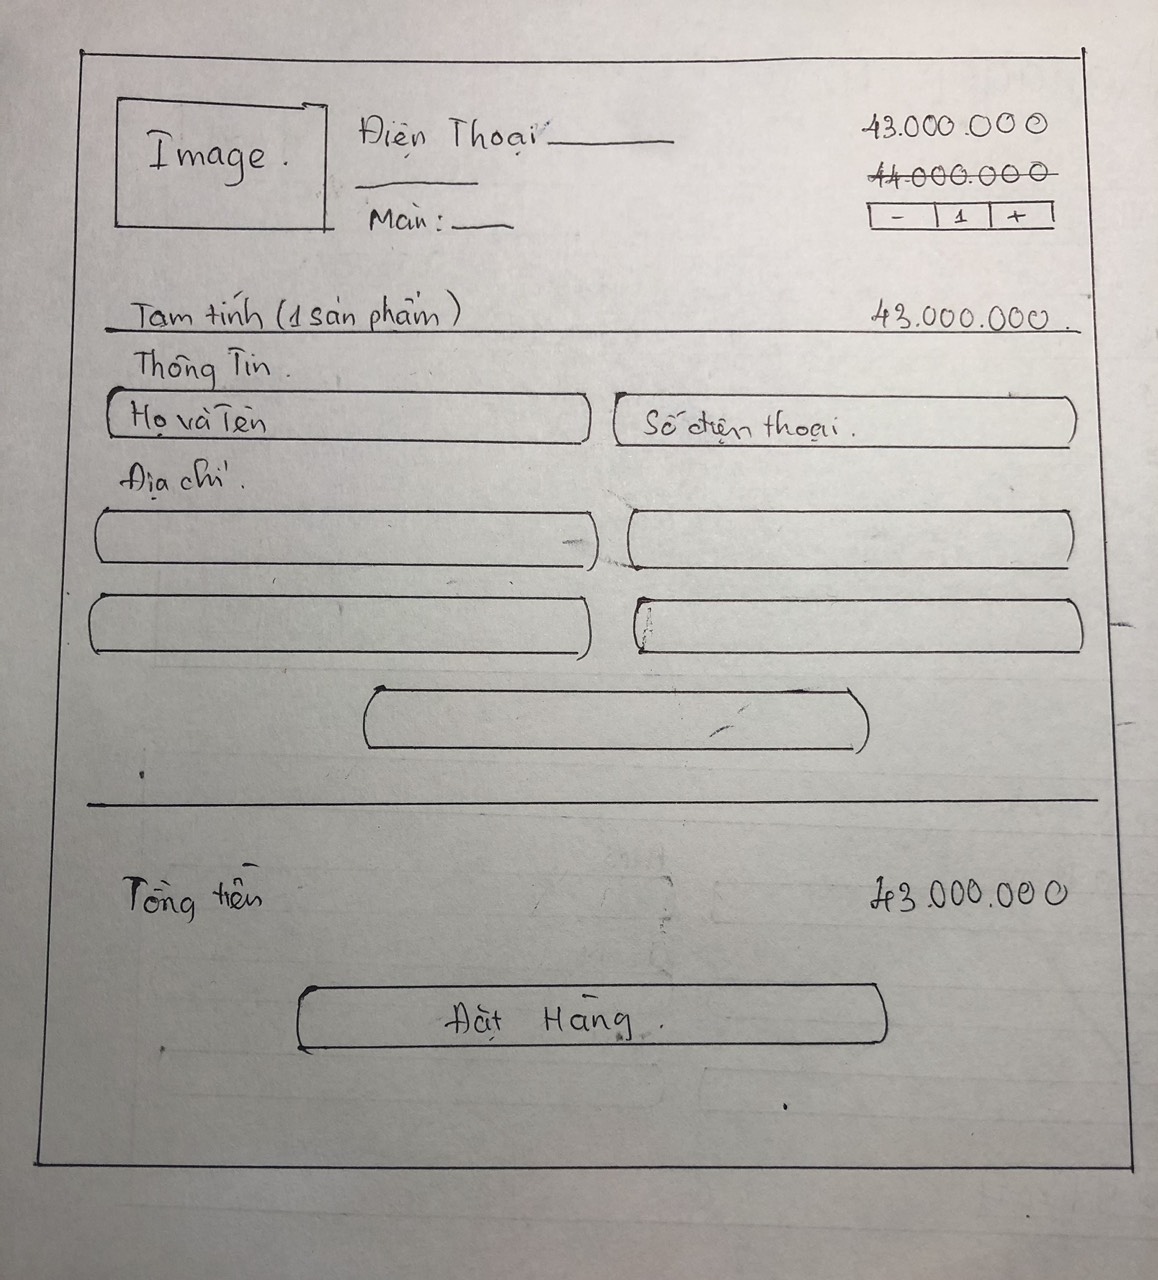 Image.
Điện Thoại
43.000.000
44.000.000
Màn:
- 1 +
Tạm tính (1 sản phẩm)
43.000.000.
Thông Tin.
Họ và Tên
Số điện thoại.
Địa chỉ.
Tổng tiền
43.000.000
Đặt Hàng.